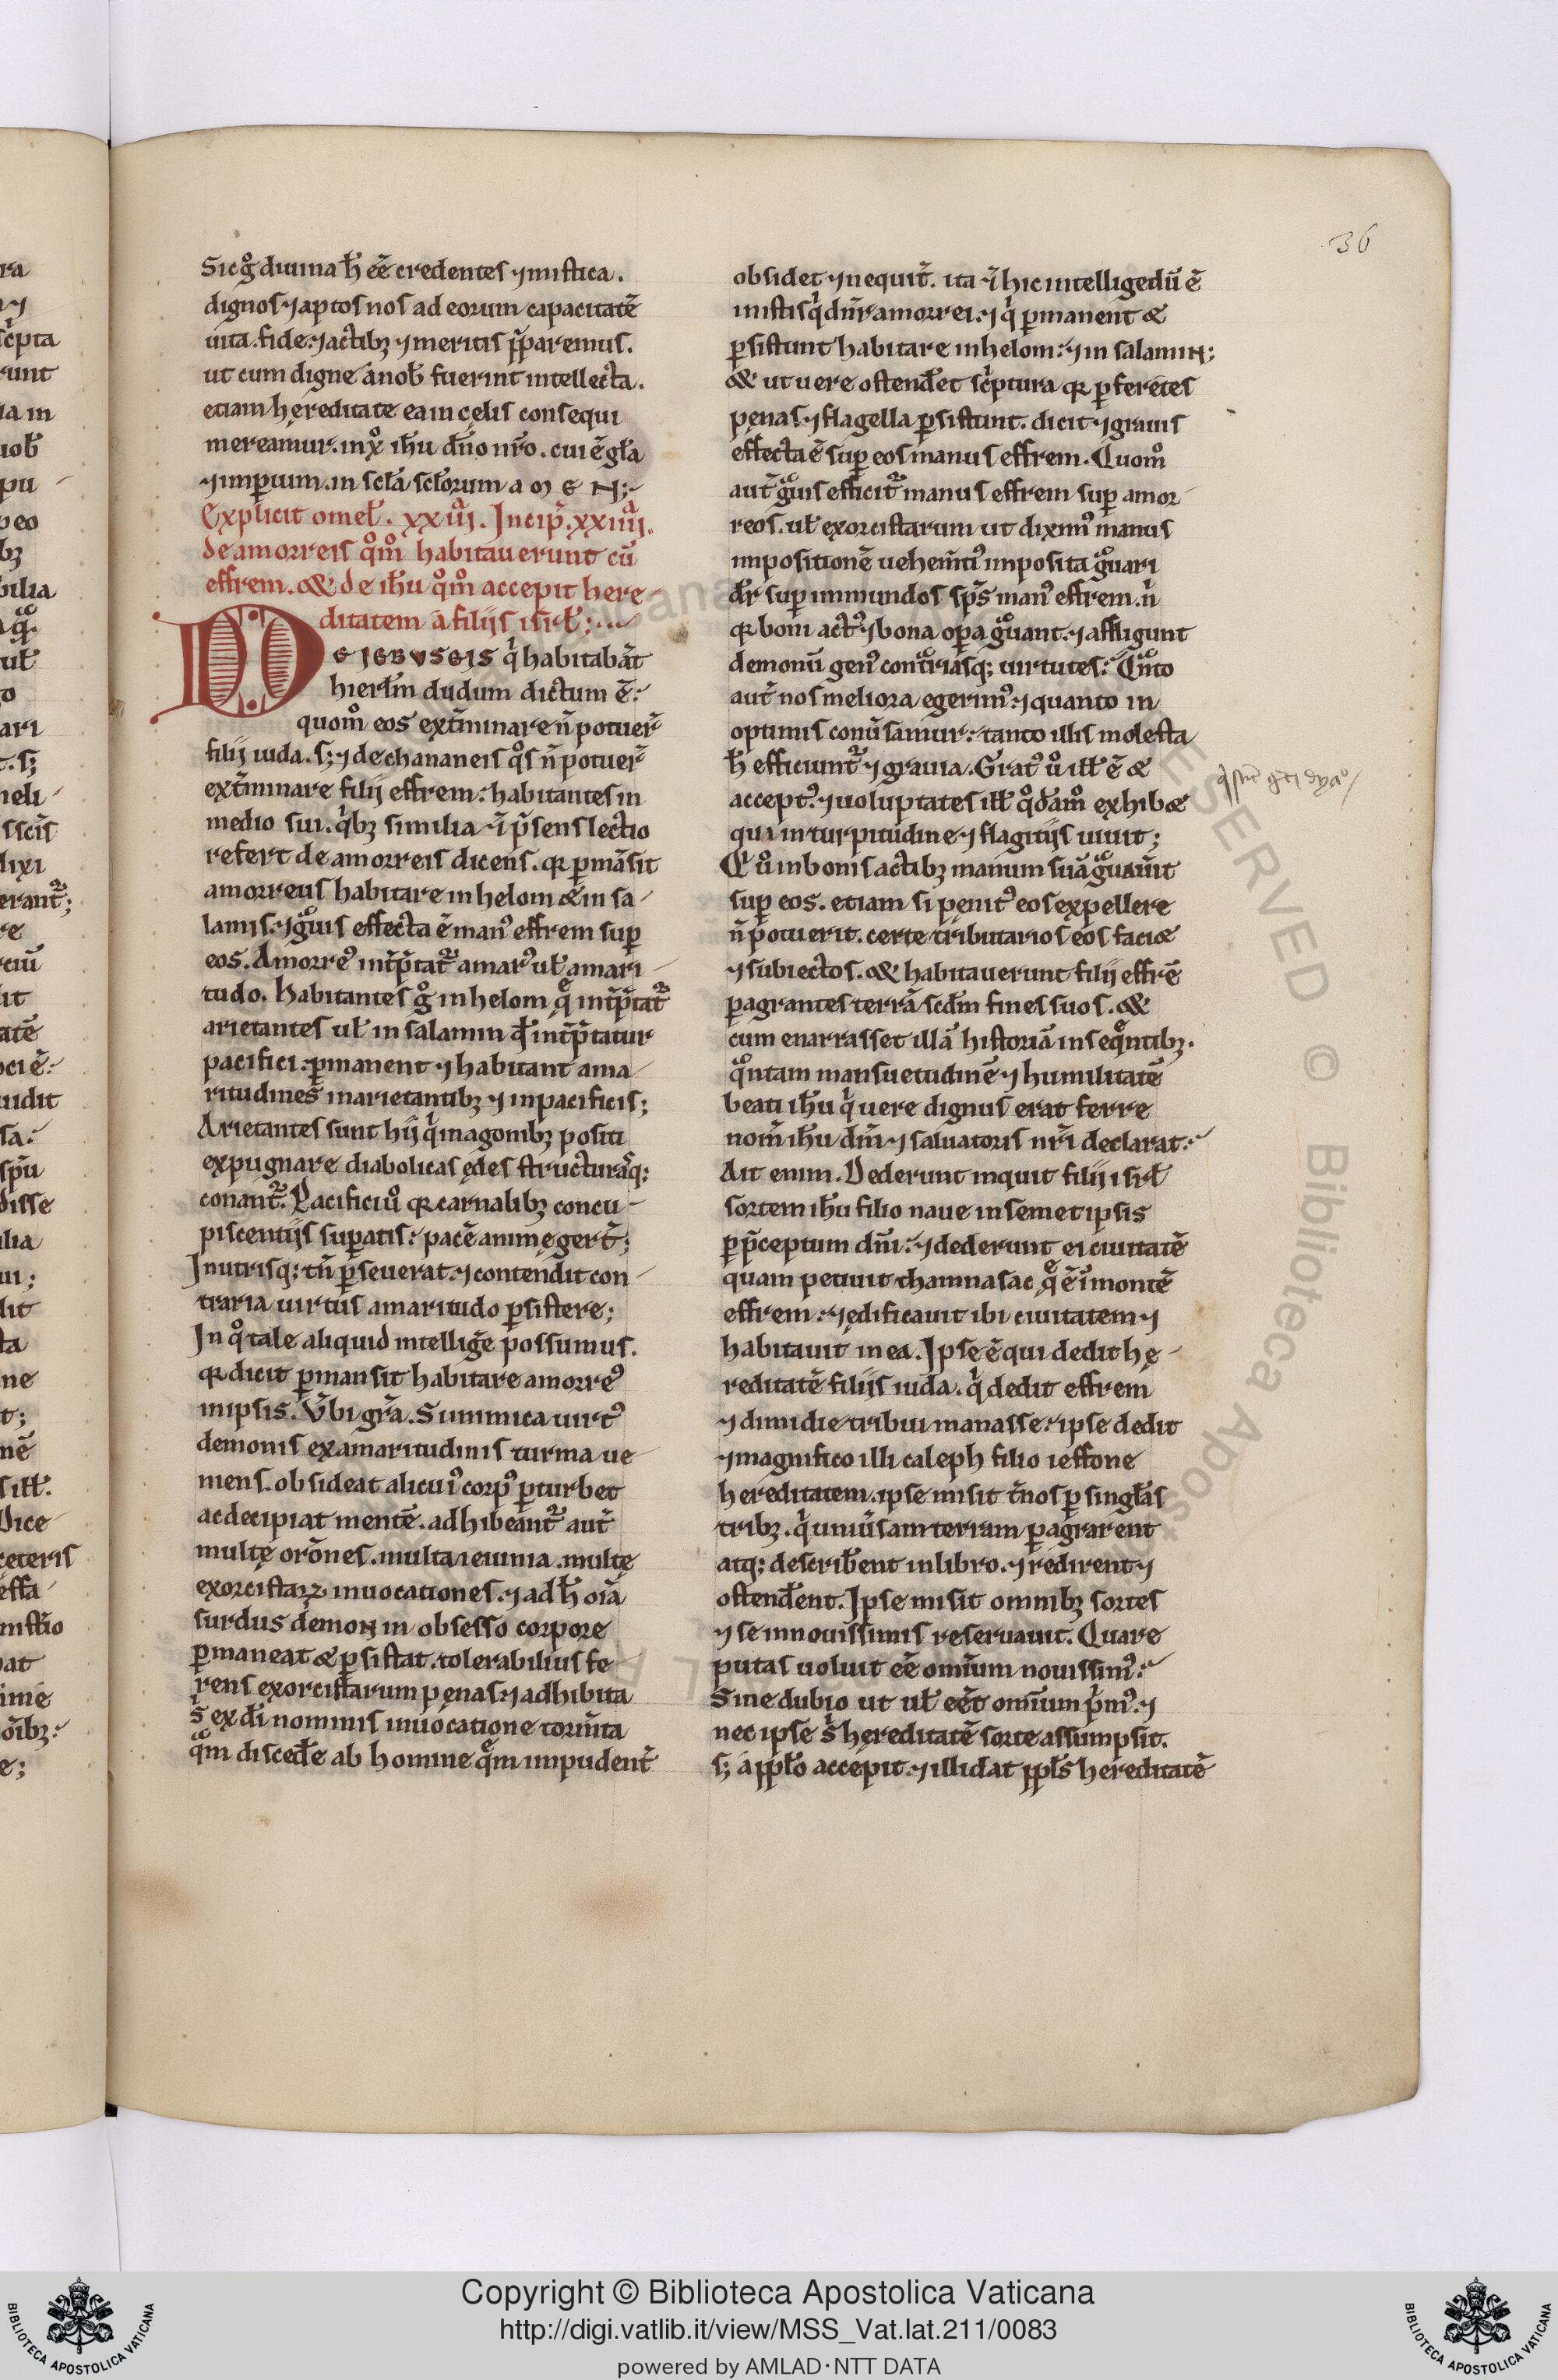 36
Sic g̊ diuina h̄ eē credentes ⁊ mistica.
dignos ⁊ aptos nos ad eorum capacitatē
uita. fide. ⁊ actibꝫ ⁊ meritis p̄paremus.
ut cum digne a nob̄ fuerint intellecta.
etiam hereditate ea in cęlis consequi
mereamur. in xp̊ ih̄u dn̄o nr̄o. cui ē gl̄a
⁊ imꝑium. in scl̄a scl̄orum a m e N;
Explicit omel̄. xxiii. Incip̄. xxiiii.
de amorreis qm̊ habitauerunt cū
effrem. & de ih̄u qm̊ accepit here-
ditatem a filijs isrl̄;
De iebuseis qi habitabāt
hierl̄m dudum dictum ē.
quom̊ eos ext̄minare n̄ potuer̄
filij iuda. sꝫ ⁊ de chananeis q̊s n̄ potuer̄
ext̄minare filij effrem: habitantes in
medio sui. qibꝫ similia ⁊ p̄sens lectio
refert de amorreis dicens. qꝛ ꝑmāsit
amorreus habitare in helom & in sa-
lamis. ⁊ gͣuis effecta ē manꝰ effrem suꝑ
eos. Amorreꝰ int̄p̄tatͬ amarꝰ ul̄ amari-
tudo. Habitantes g̊ in helom q̄ int̄p̄tatͬ
arietantes ul̄ in salamin qđ int̄p̄tatur
pacifici: ꝑmanent ⁊ habitant ama-
ritudines in arietantibꝫ ⁊ in pacificis;
Arietantes sunt hij qi in agonibꝫ positi
expugnare diabolicas ędes structurasqꝫ
conantͬ. Pacifici ů qꝛ carnalibꝫ concu-
piscentijs suꝑatis: pacē anime gerT̄;
In utrisqꝫ tn̄ ꝑseuerat. ⁊ contendit con-
traria uirtus amaritudo ꝑsistere;
In q̊ tale aliquid intellige possumus.
qꝛ dicit ꝑmansit habitare amorreꝰ
in ipsis. Vbi gr̄a. Si inimica uirtꝰ
demonis ex amaritudinis turma ue-
mens. obsideat alicuiꝰ corpꝰ ꝑturbet
ac decipiat mentē. adhibeantͬ aut̄
multę orōnes. multa ieiunia. multę
exorcistaꝝ inuocationes. ⁊ ad h̄ oīa
surdus demoN in obsesso corpore
ꝑmaneat & ꝑsistat. tolerabilius fe-
rens exorcistarum pęnas ⁊ adhibita
s̄ ex dī nominis inuocatione torm̄ta
qͣm discede ab homine qem impudent̄
obsidet ⁊ nequit̄. ita ⁊ hic intelligedū ē
in istis qi dn̄r amorrei. ⁊ qi ꝑmanent &
ꝑsistunt habitare in helom. ⁊ in salamiN;
& ut uere ostendet sc̄ptura qꝛ ꝑferētes
pęnas ⁊ flagella ꝑsistunt. dicit ⁊ grauis
effecta ē suꝑ eos manus effrem. Quom̊
aut̄ gͣuis efficitͬ manus effrem suꝑ amor-
reos. ul̄ exorcistarum ut diximꝰ manus
impositionē uehemt̄ꝰ imposita gͣuari
dr̄ suꝑ immundos sp̄s manꝰ effrem. ni
qꝛ boni actꝰ ⁊ bona oꝑa gͣuant. ⁊ affligunt
demonū genꝰ contͣriasqꝫ uirtutes: Qͣnto
aut̄ nos meliora egerimꝰ ⁊ quanto in
optimis conūsamur: tanto illis molesta
h̄ efficiuntͬ ⁊ grauia. Gratꝰ ů ill̄ ē &
acceptꝰ. ⁊ uoluptates ill̄ q̊dam̊ exhib&
qui in turpitudine ⁊ flagitijs uiuit;
Qi ů in bonis actibꝫ manum suā gͣuaūit
suꝑ eos. etiam si penitꝰ eos expellere
n̄ potuerit. certe tributarios eos faci&
⁊ subiectos. & habitauerunt filij effrē
ꝑagrantes terrā scdm̄ fines suos. &
cum enarrasset illā historiā in seqentibꝫ.
qͣntam mansuetudinē ⁊ humilitatē
beati ih̄u qi uere dignus erat ferre
nom̄ ih̄u dn̄i ⁊ saluatoris nr̄i declarat:
Ait enim. Dederunt inquit filij isrl̄
sortem ih̄u filio naue in semetipsis
ꝑ p̄ceptum dn̄i: ⁊ dederunt ei ciuitatē
quam petiuit thamnasac qe ē ī montē
effrem: ⁊ ędificauit ibi ciuitatem ⁊
habitauit in ea. Ipse ē qui dedit hę-
reditatē filijs iuda. qi dedit effrem
⁊ dimidie tribui manasse: ipse dedit
⁊ magnifico illi caleph filio ieffone
hereditatem. ipse misit t̄nos ꝑ singl̄as
tribꝫ. qi uniūsam terram ꝑagrarent
atqꝫ describent in libro. ⁊ redirent ⁊
ostendent. Ipse misit omnibꝫ sortes
⁊ se in nouissimis reseruauit. Quare
putas uoluit eē omīum nouissimꝰ:
Sine dubio ut ul̄ eēt omīum pimꝰ. ⁊
nec ipse s̄ hereditatē sorte assumpsit.
sꝫ a ppl̄o accepit. ⁊ illi dat ppl̄s hereditatē
Copyright © Biblioteca Apostolica Vaticana
http://digi.vatlib.it/view/MSS_Vat.lat.211/0083
powered by AMLAD·NTT DATA
BIBLIOTECA APOSTOLICA VATICANA
BIBLIOTECA APOSTOLICA VATICANA